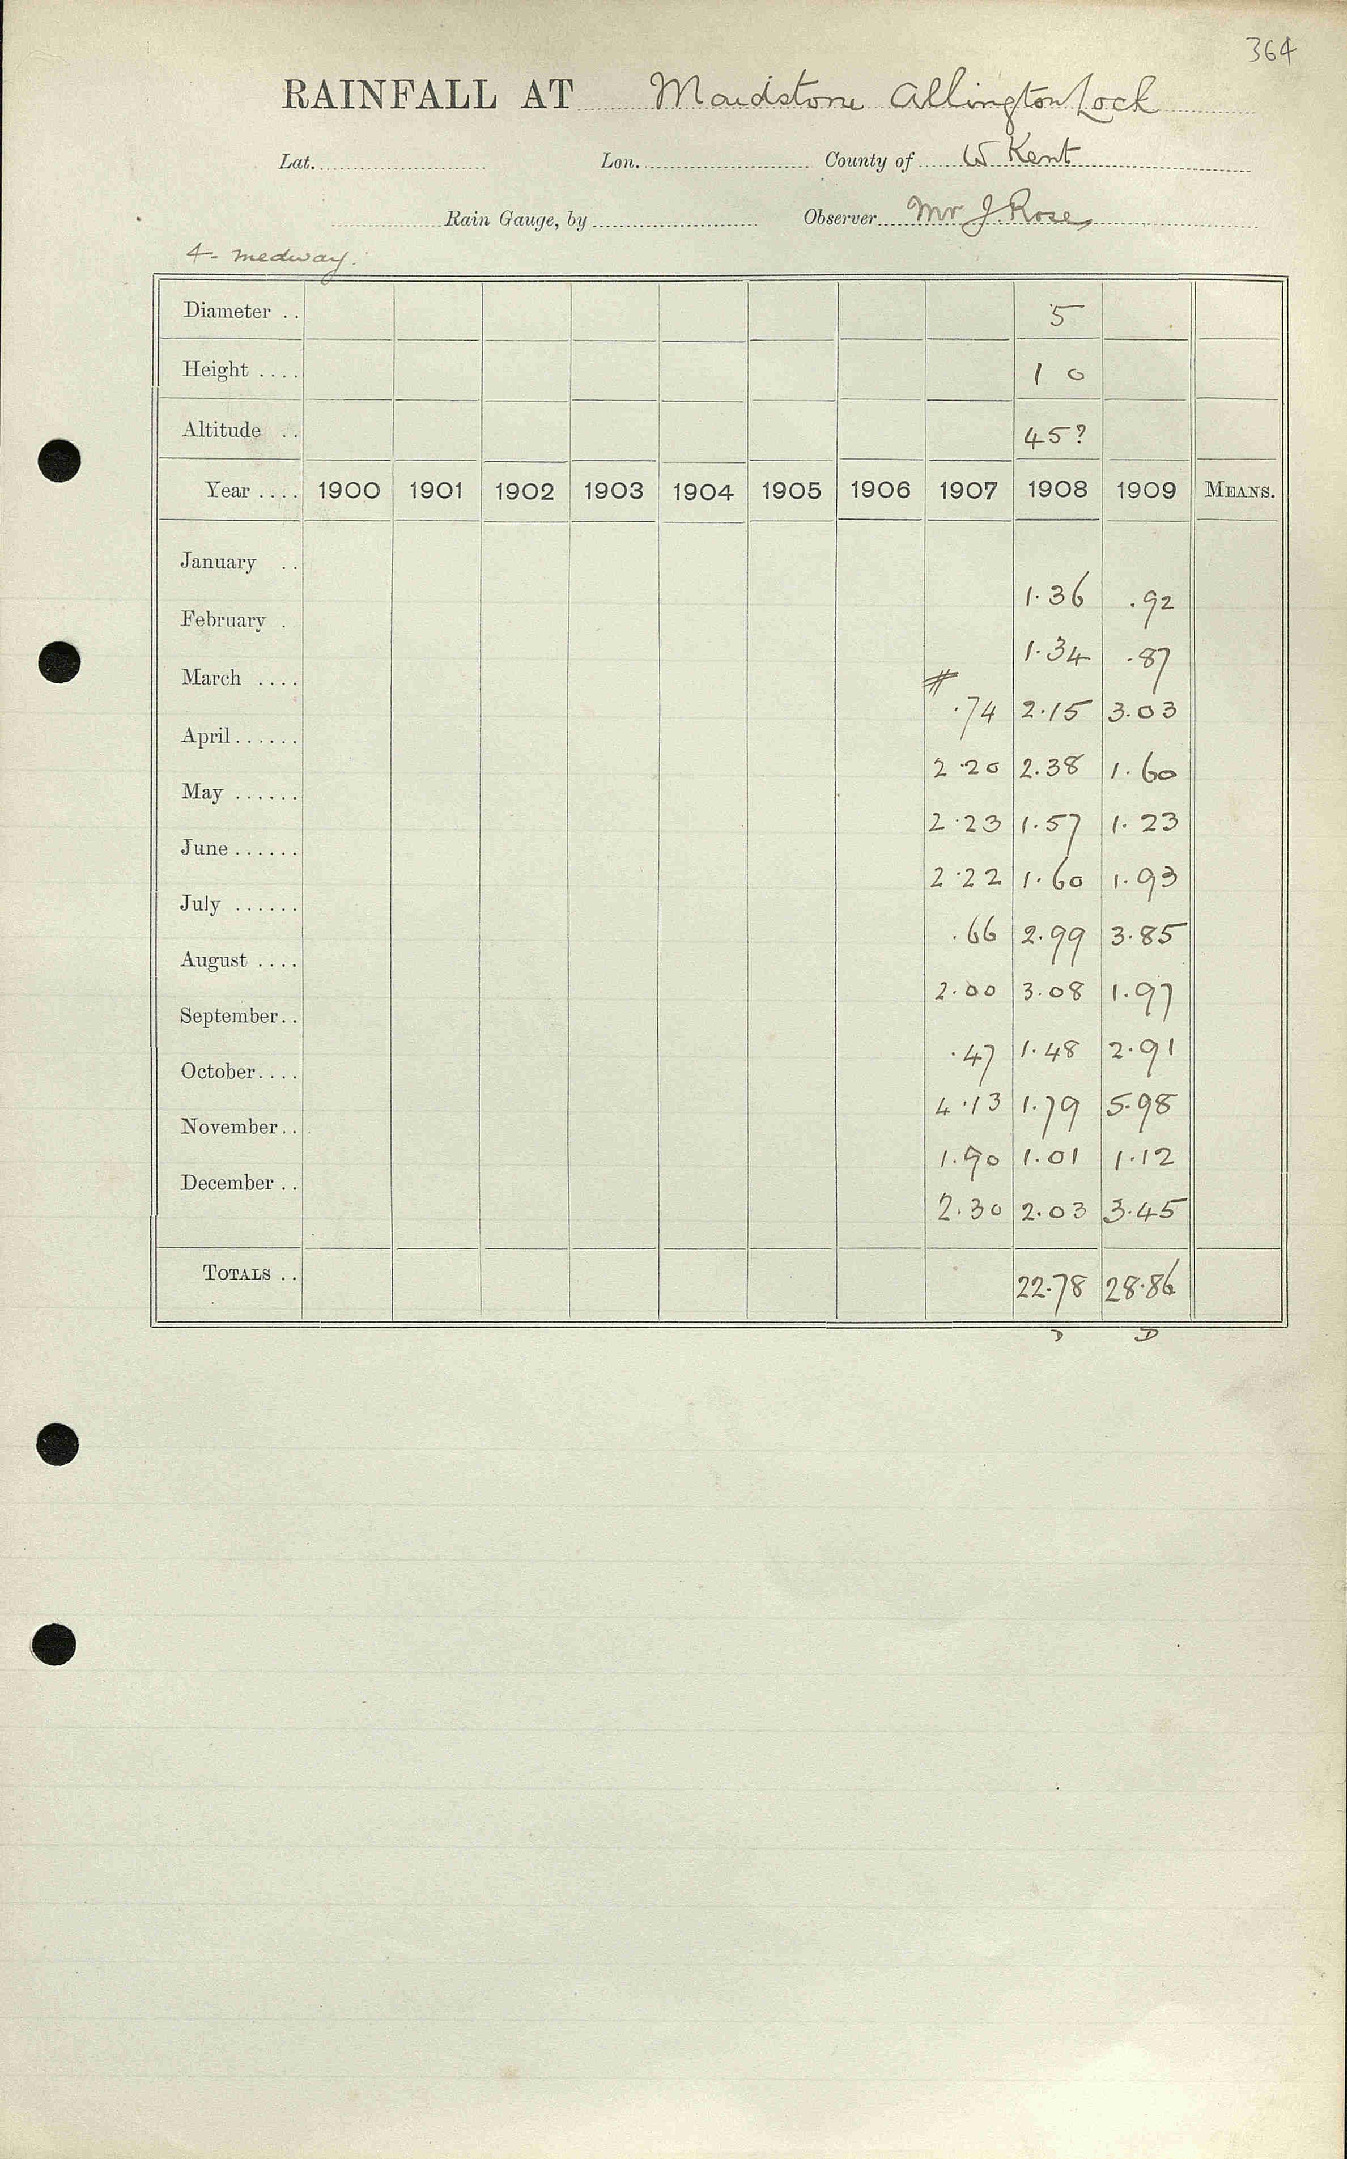 364
RAINFALL AT Maidstone Allington Lock
Lat. Lon. County of W Kent
Rain Gauge, by Observer Mr J. Rose
4 - Medway.
Diameter .. 5
Height .... 1 0
Altitude .. 45?
Year .... 1900 1901 1902 1903 1904 1905 1906 1907 1908 1909 MEANS.
January .. 1.36 .92
February . 1.34 .87
March .... # .74 2.15 3.03
April...... 2.20 2.38 1.60
May ...... 2.23 1.57 1.23
June...... 2.22 1.60 1.93
July ...... .66 2.99 3.85
August .... 2.00 3.08 1.97
September.. .47 1.48 2.91
October.... 4.13 1.79 5.98
November.. 1.90 1.01 1.12
December .. 2.30 2.03 3.45
TOTALS .. 22.78 28.86
D D